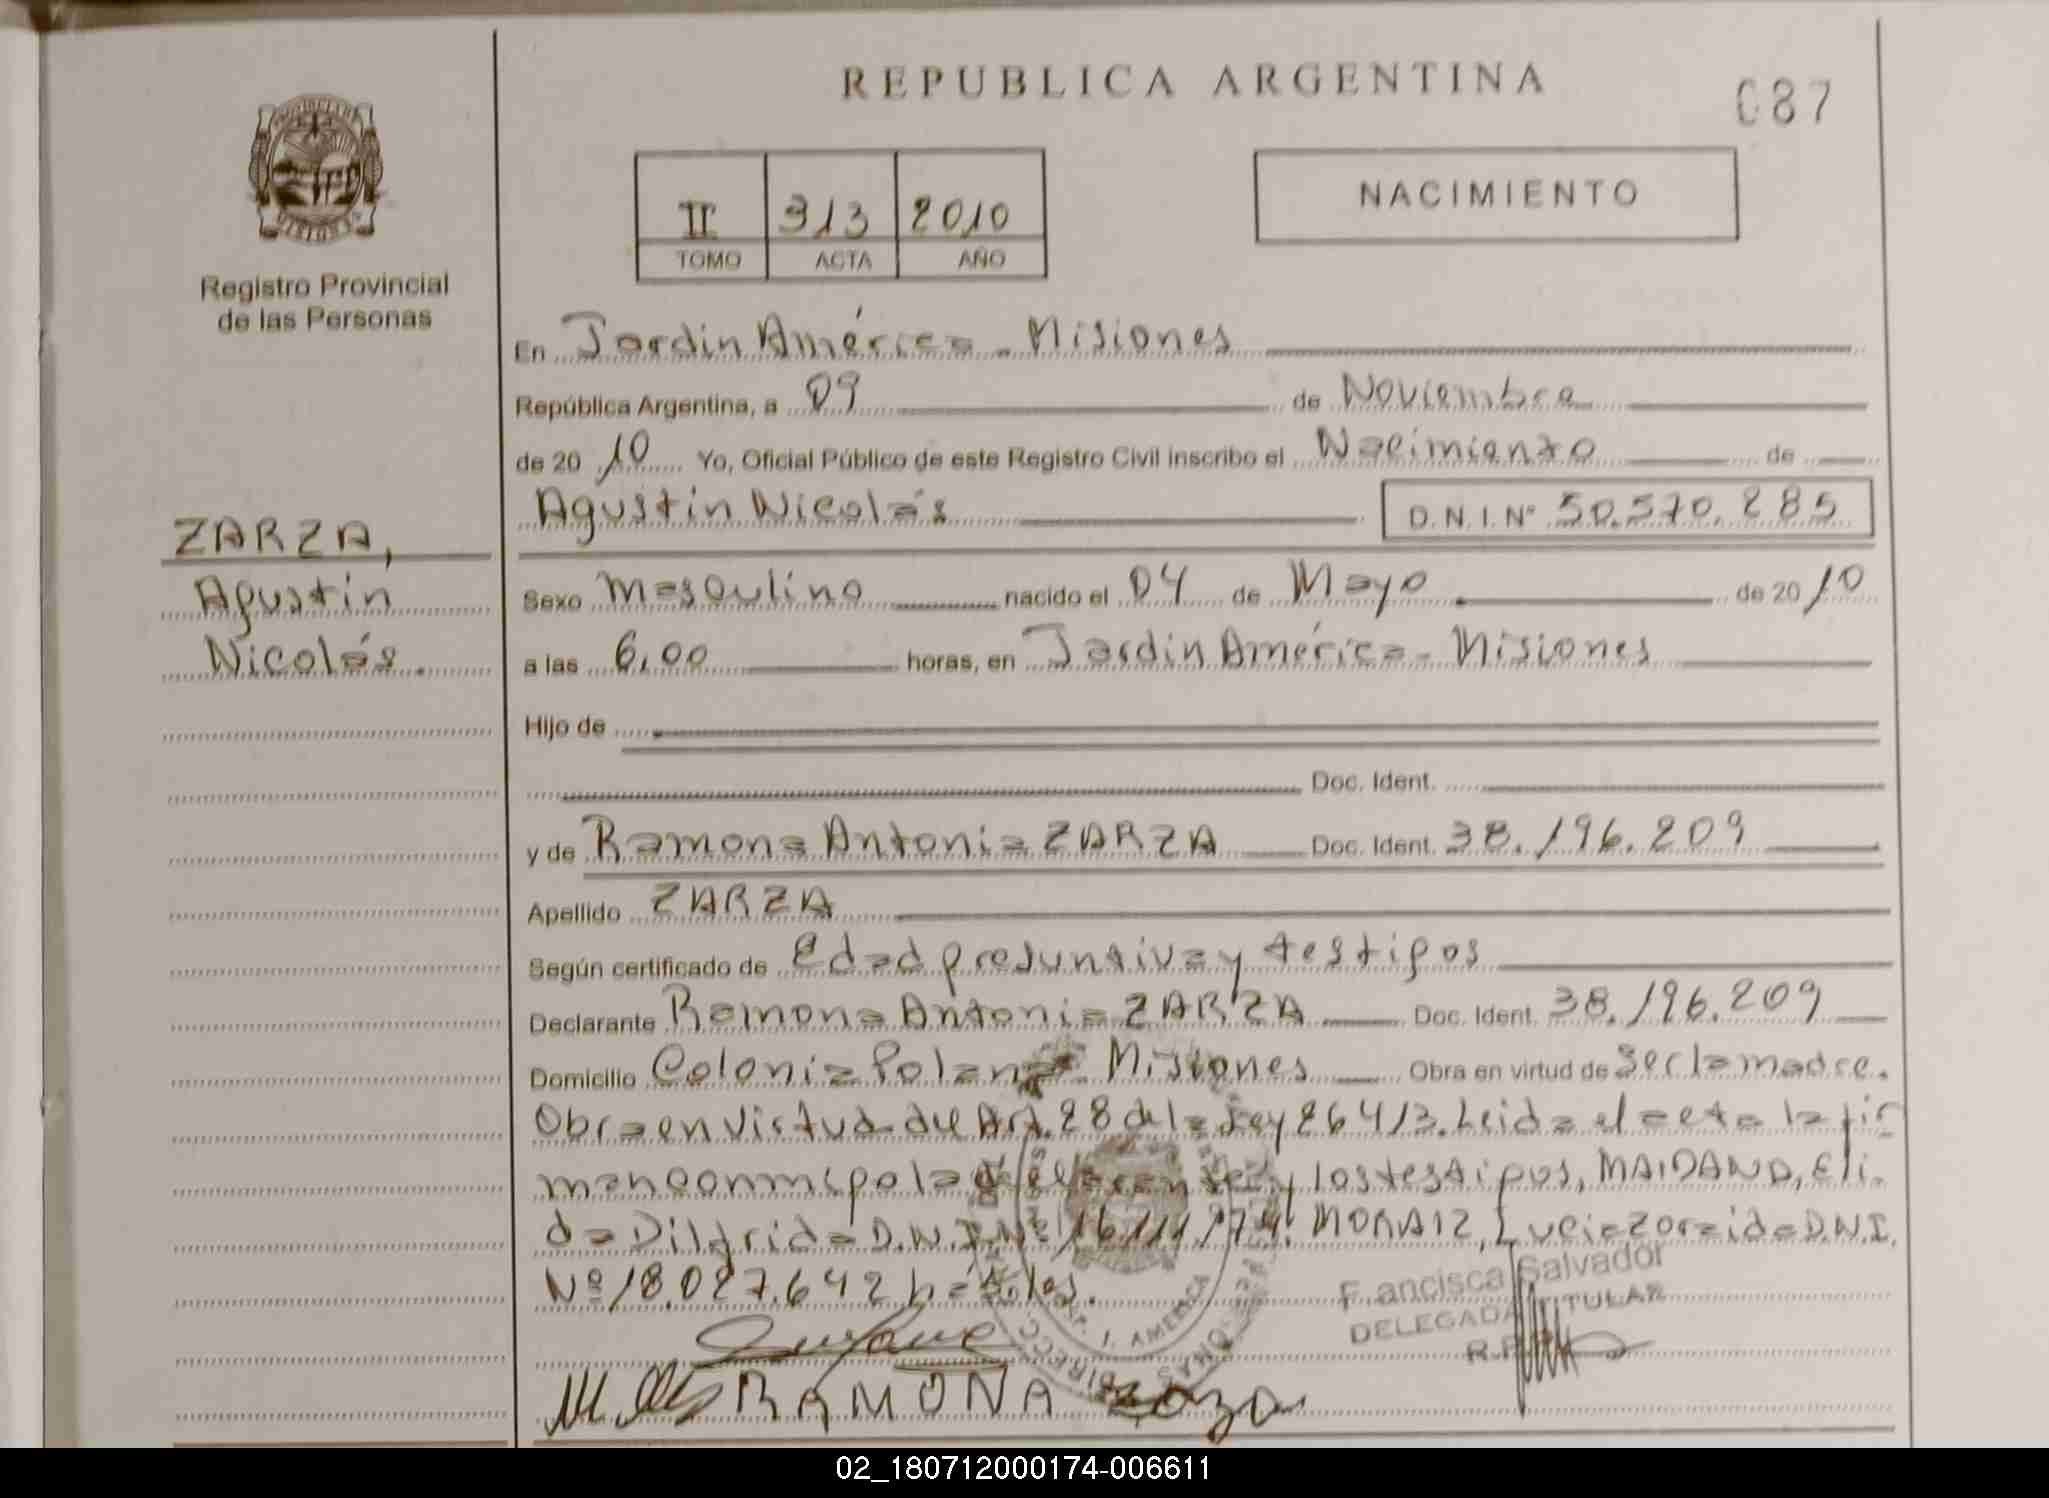 REPUBLICA ARGENTINA
087
PROVINCIA DE MISIONES
Registro Provincial
de las Personas
II 313 2010
TOMO ACTA AÑO
NACIMIENTO
En Jardín América - Misiones
República Argentina, a 09 de Noviembre
de 20 10 Yo, Oficial Público de este Registro Civil inscribo el Nacimiento de
Agustín Nicolás D.N.I.Nº 50.570.285
ZARZA,
Agustín
Nicolás.
Sexo Masculino nacido el 04 de Mayo de 20 10
a las 6,00 horas, en Jardín América - Misiones
Hijo de
Doc. Ident.
y de Ramona Antonia ZARZA Doc. Ident. 38.196.209
Apellido ZARZA
Según certificado de Edad presuntiva y testigos
Declarante Ramona Antonia ZARZA Doc. Ident. 38.196.209
Domicilio Colonia Polana Misiones Obra en virtud de Ser la madre.
Obra en virtud del Art. 28 de la Ley 26413. Leida el acta la fir
man conmigo la declarante y los testigos, MAIDANA, Eli-
da D.N.I.Nº 16.111.174. MORAIZ, Lucia Zoraida D.N.I.
Nº 18.027.642 hábiles.
Francisca Salvador
DELEGADA TITULAR
R.P.P.
J. AMERICA
RAMONA Zarza
02_180712000174-006611